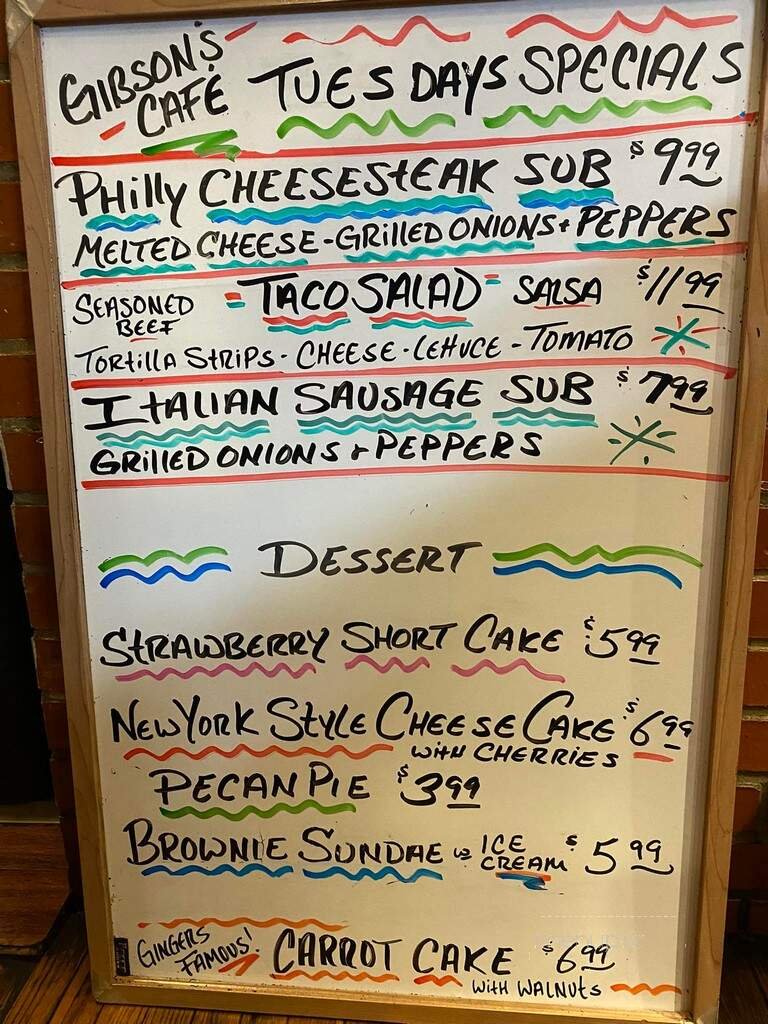 GIBSON'S CAFÉ TUESDAYS SPECIALS
PHILLY CHEESESTEAK SUB $9.99
MELTED CHEESE - GRILLED ONIONS + PEPPERS
SEASONED BEEF = TACO SALAD = SALSA $11.99
TORTILLA STRIPS - CHEESE - LETTUCE - TOMATO
ITALIAN SAUSAGE SUB $7.99
GRILLED ONIONS & PEPPERS
DESSERT
STRAWBERRY SHORT CAKE $5.99
NEW YORK STYLE CHEESE CAKE $6.99
WITH CHERRIES
PECAN PIE $3.99
BROWNIE SUNDAE W ICE CREAM $5.99
GINGERS FAMOUS! CARROT CAKE $6.99
WITH WALNUTS